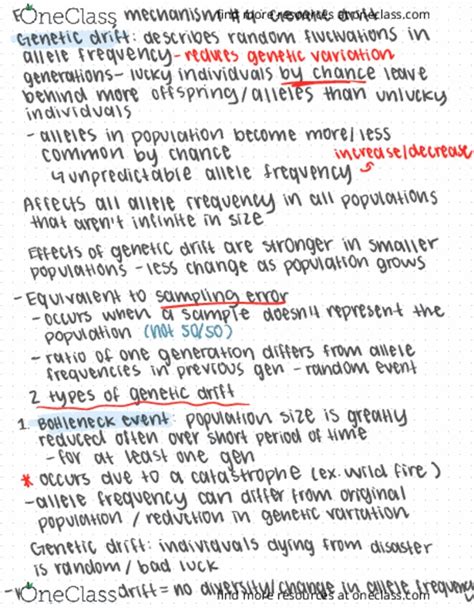 OneClass mechanism find more resources at oneclass.com
Genetic drift: describes random fluctuations in
allele frequency-reduces genetic variation
generations- lucky individuals by chance leave
behind more offspring/alleles than unlucky
individuals
- alleles in population become more/less
common by chance increase/decrease
↳unpredictable allele frequency
Affects all allele frequency in all populations
that aren't infinite in size
Effects of genetic drift are stronger in smaller
populations - less change as population grows
- Equivalent to sampling error
- occurs when a sample doesn't represent the
population (not 50/50)
- ratio of one generation differs from allele
frequencies in previous gen - random event
2 types of genetic drift
1. Bottleneck event: population size is greatly
reduced often over short period of time
- for at least one gen
* occurs due to a catastrophe (ex. wild fire)
- allele frequency can differ from original
population / reduction in genetic variation
Genetic drift: individuals dying from disaster
is random / bad luck
OneClass drift = no diversity/change in allele frequency
find more resources at oneclass.com